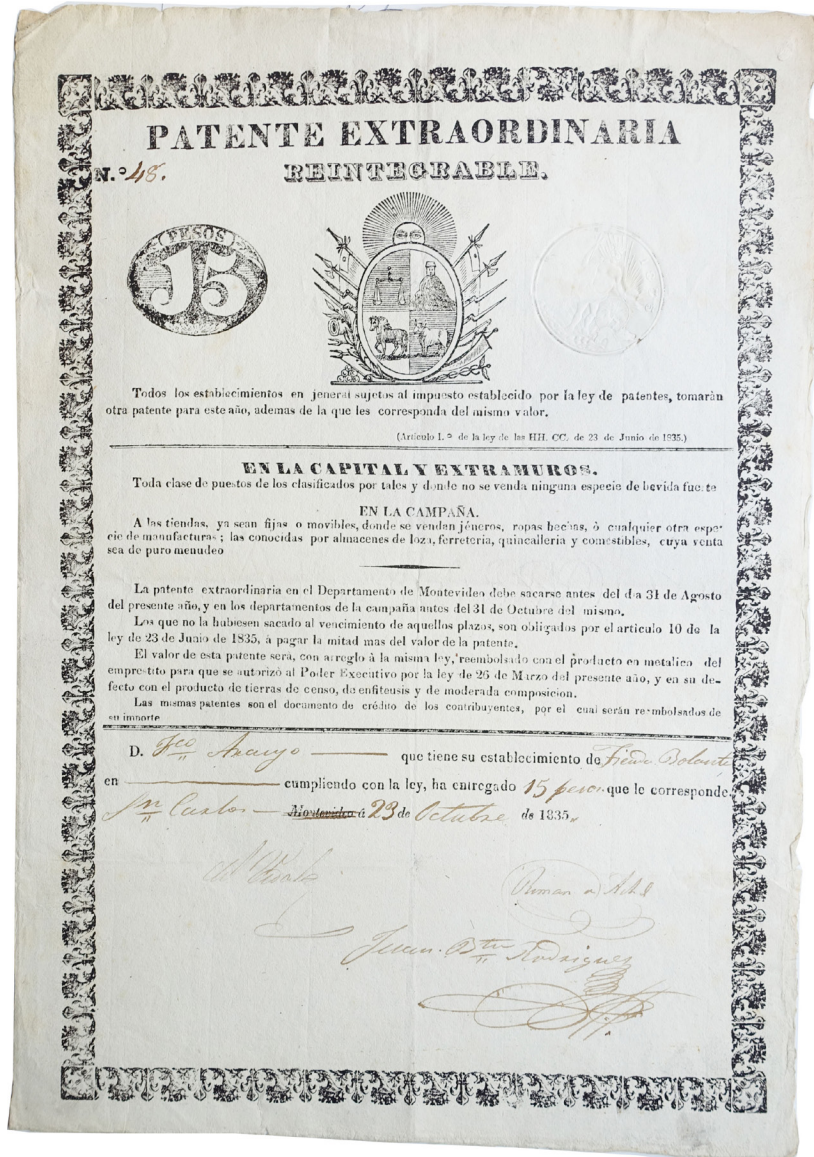 PATENTE EXTRAORDINARIA
N.º 48.
REINTEGRABLE.
PESOS
15
Todos los establecimientos en jeneral sujetos al impuesto establecido por la ley de patentes, tomaràn
otra patente para este año, ademas de la que les corresponda del mismo valor.
(Articulo 1.º de la ley de las HH. CC. de 23 de Junio de 1835.)
EN LA CAPITAL Y EXTRAMUROS.
Toda clase de puestos de los clasificados por tales y donde no se venda ninguna especie de bevida fuerte
EN LA CAMPAÑA.
A las tiendas, ya sean fijas o movibles, donde se vendan jéneros, ropas hechas, ó cualquier otra espe-
cie de manufacturas; las conocidas por almacenes de loza, ferreteria, quincalleria y comestibles, cuya venta
sea de puro menudeo
La patente extraordinaria en el Departamento de Montevideo debe sacarse antes del dia 31 de Agosto
del presente año, y en los departamentos de la campaña antes del 31 de Octubre del mismo.
Los que no la hubiesen sacado al vencimiento de aquellos plazos, son obligados por el articulo 10 de la
ley de 23 de Junio de 1835, á pagar la mitad mas del valor de la patente.
El valor de esta patente será, con arreglo à la misma ley, reembolsado con el producto en metalico del
emprestito para que se autorizó al Poder Executivo por la ley de 26 de Marzo del presente año, y en su de-
fecto con el producto de tierras de censo, de enfiteusis y de moderada composicion.
Las mismas patentes son el documento de crédito de los contribuyentes, por el cual serán reembolsados de
su importe
D. Fco Araujo que tiene su establecimiento de Tienda Bolante
en cumpliendo con la ley, ha entregado 15 pesos que le corresponde.
Sn Carlos Montevideo á 23 de Octubre de 1835
Roman de
Juan Bta Rodriguez